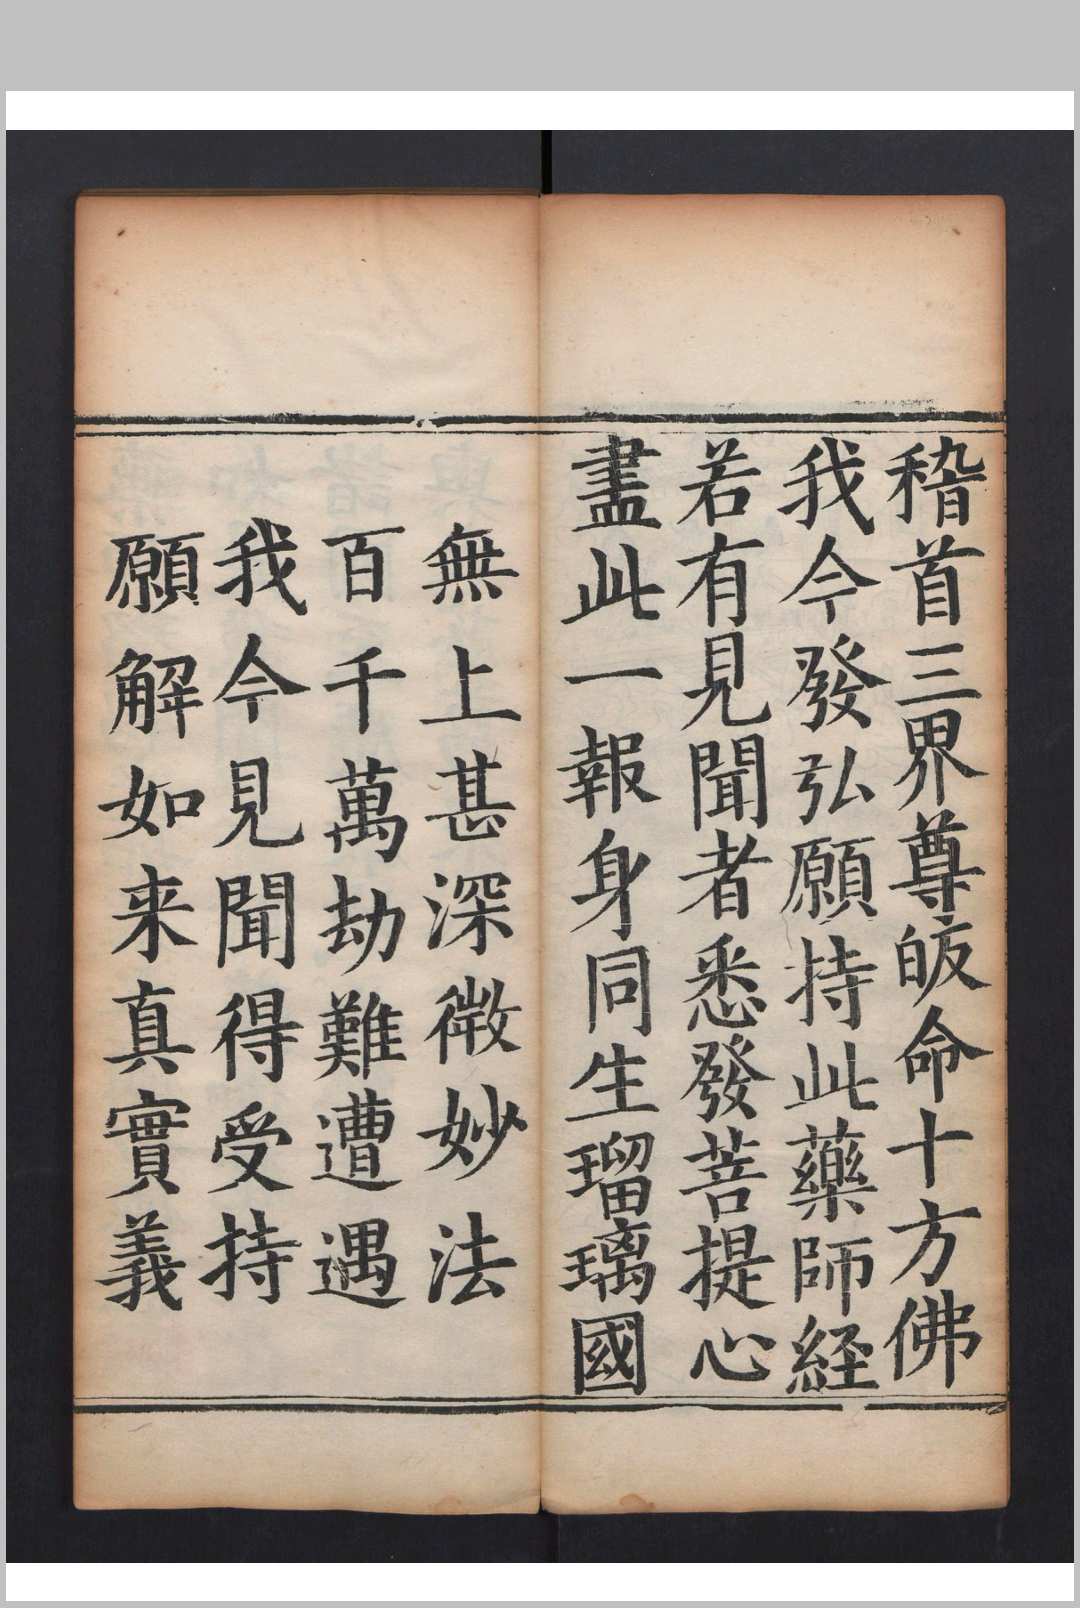 稽首三界尊皈命十方佛
我今發弘願持此藥師經
若有見聞者悉發菩提心
盡此一報身同生瑠璃國
無上甚深微妙法
百千萬劫難遭遇
我今見聞得受持
願解如来真實義